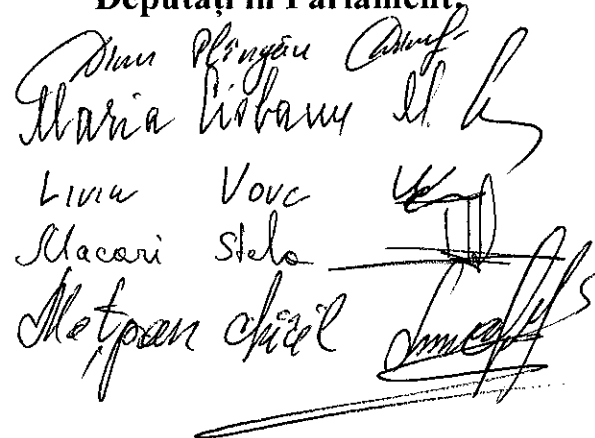 Deputați în Parlament:
Dinu Plîngău
Maria Ciobanu
Liviu Vovc
Macari Stela
Moțpan Chiril